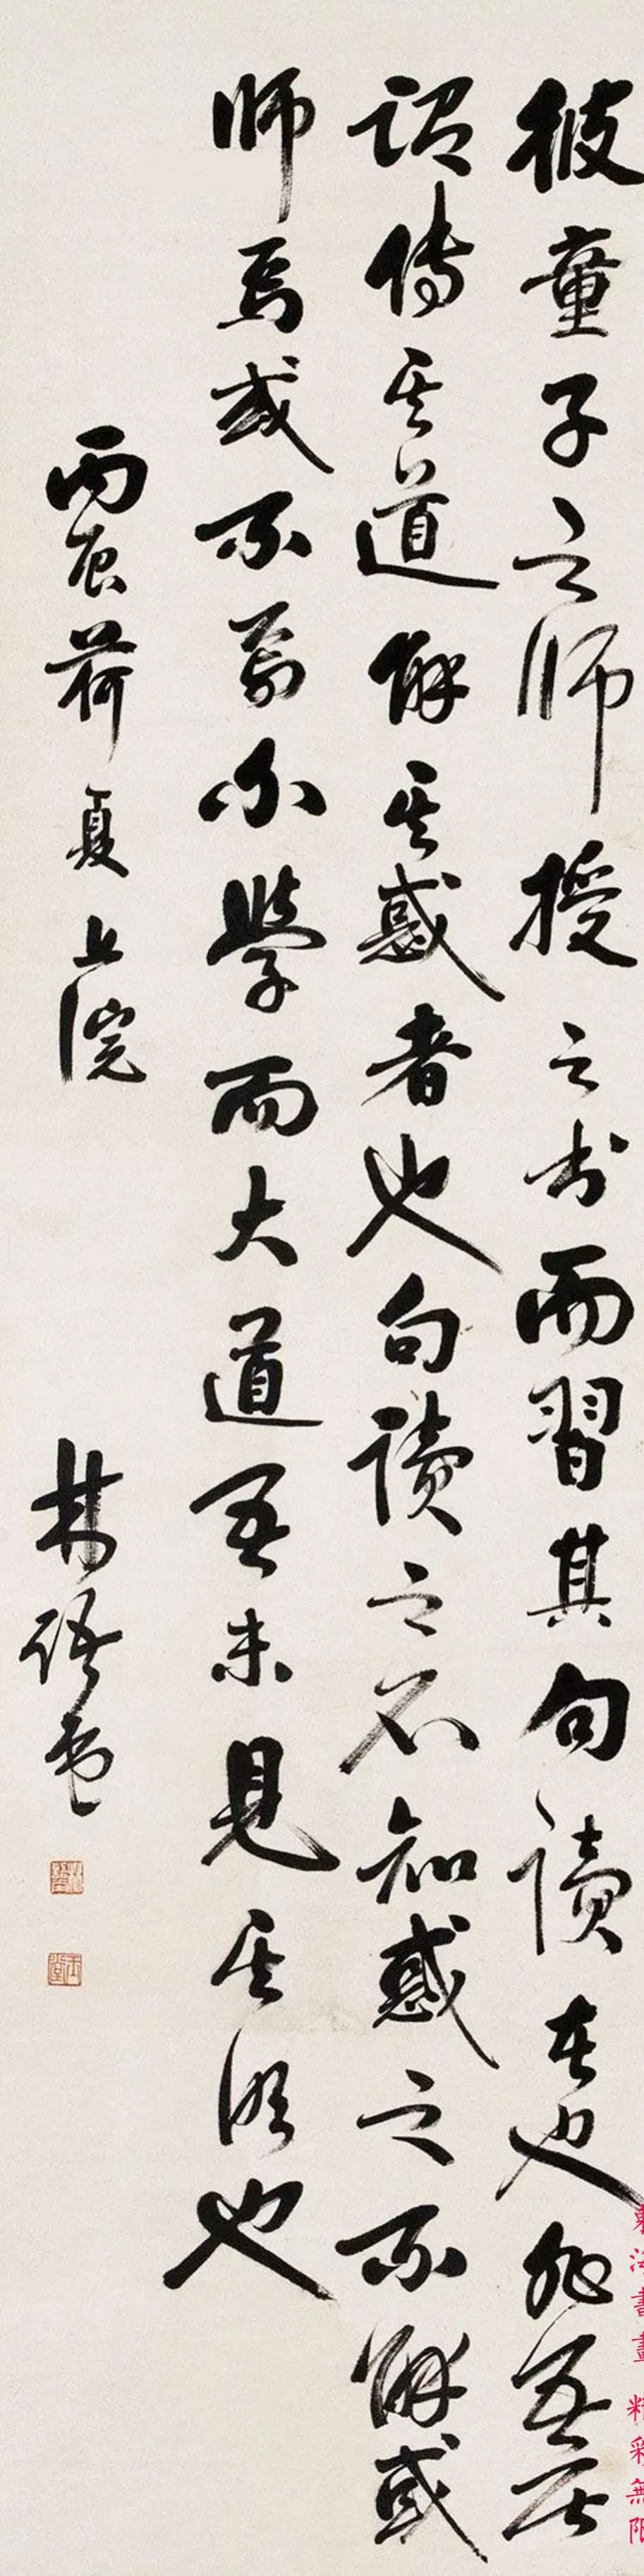 彼童子之师授之书而習其句讀者也非吾所
謂傳其道解其惑者也句讀之不知惑之不解或
师焉或不焉小學而大道吾未見其明也
丙辰荷夏上浣
林語堂
書畫 精彩無限